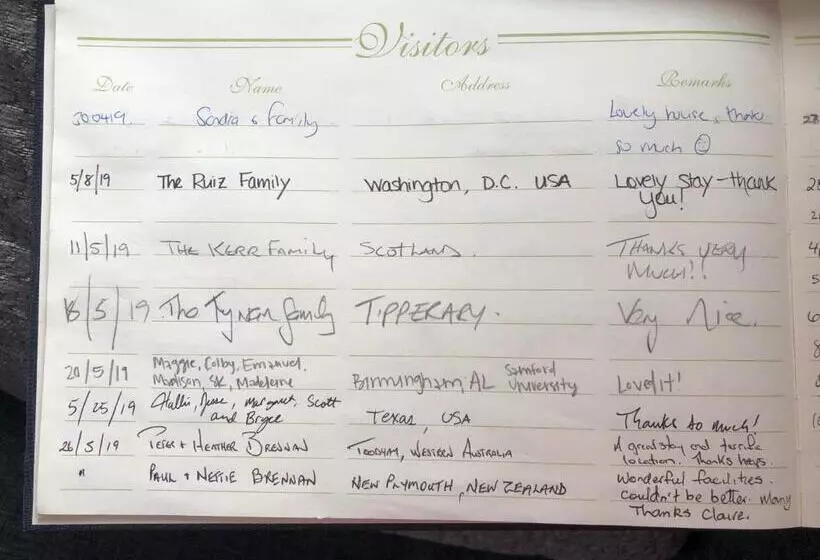 Visitors
Date Name Address Remarks
300419. Sandra & Family Lovely house, thanks
so much ☺
5/8/19 The Ruiz Family Washington, D.C. USA Lovely stay - thank
you!
11/5/19 THE KERR FAMILY SCOTLAND. THANKS VERY
MUCH!!
5/19 The family TIPPERARY. Very Nice.
20/5/19 Maggie, Colby, Emanuel, Samford
Madison, SK, Madeleine Birmingham, AL University Loved it!
5/25/19 Hallie, Jesse, Margaret, Scott
and Bryce Texas, USA Thanks so much!
26/5/19 PETER & HEATHER BRENNAN TOODYAY, WESTERN AUSTRALIA A great stay and terrific
location. Thanks heaps.
" PAUL & NETTIE BRENNAN NEW PLYMOUTH, NEW ZEALAND Wonderful facilities.
Couldn't be better. Many
Thanks Claire.